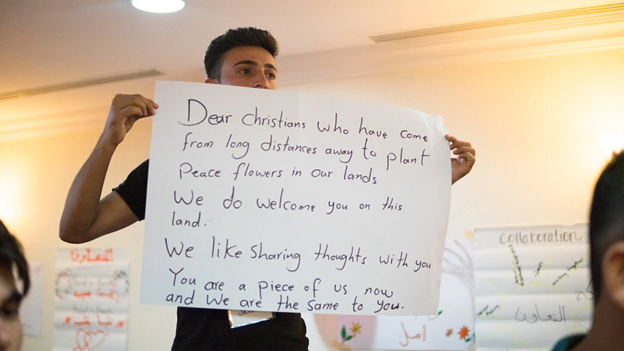 Dear Christians who have come
from long distances away to plant
peace flowers in our lands
We do welcome you on this
land.
We like sharing thoughts with you
You are a piece of us now
and we are the same to you.
التعاون
collaboration
التعاون
امل